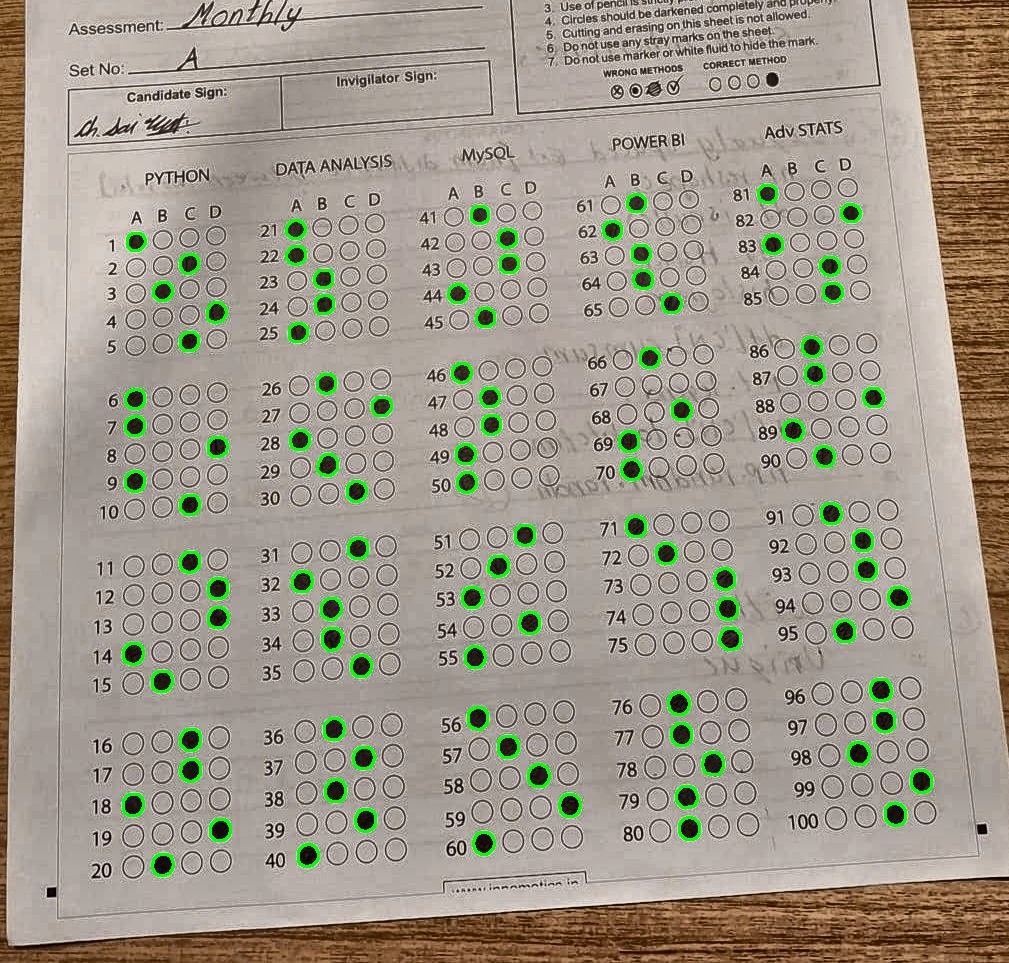 Assessment: Monthly
Set No: A
Candidate Sign:
Invigilator Sign:
4. Circles should be darkened completely and properly.
5. Cutting and erasing on this sheet is not allowed.
6. Do not use any stray marks on the sheet.
7. Do not use marker or white fluid to hide the mark.
WRONG METHODS CORRECT METHOD
PYTHON
A B C D
1
2
3
4
5
6
7
8
9
10
11
12
13
14
15
16
17
18
19
20
DATA ANALYSIS
A B C D
21
22
23
24
25
26
27
28
29
30
31
32
33
34
35
36
37
38
39
40
MySQL
A B C D
41
42
43
44
45
46
47
48
49
50
51
52
53
54
55
56
57
58
59
60
POWER BI
A B C D
61
62
63
64
65
66
67
68
69
70
71
72
73
74
75
76
77
78
79
80
Adv STATS
A B C D
81
82
83
84
85
86
87
88
89
90
91
92
93
94
95
96
97
98
99
100